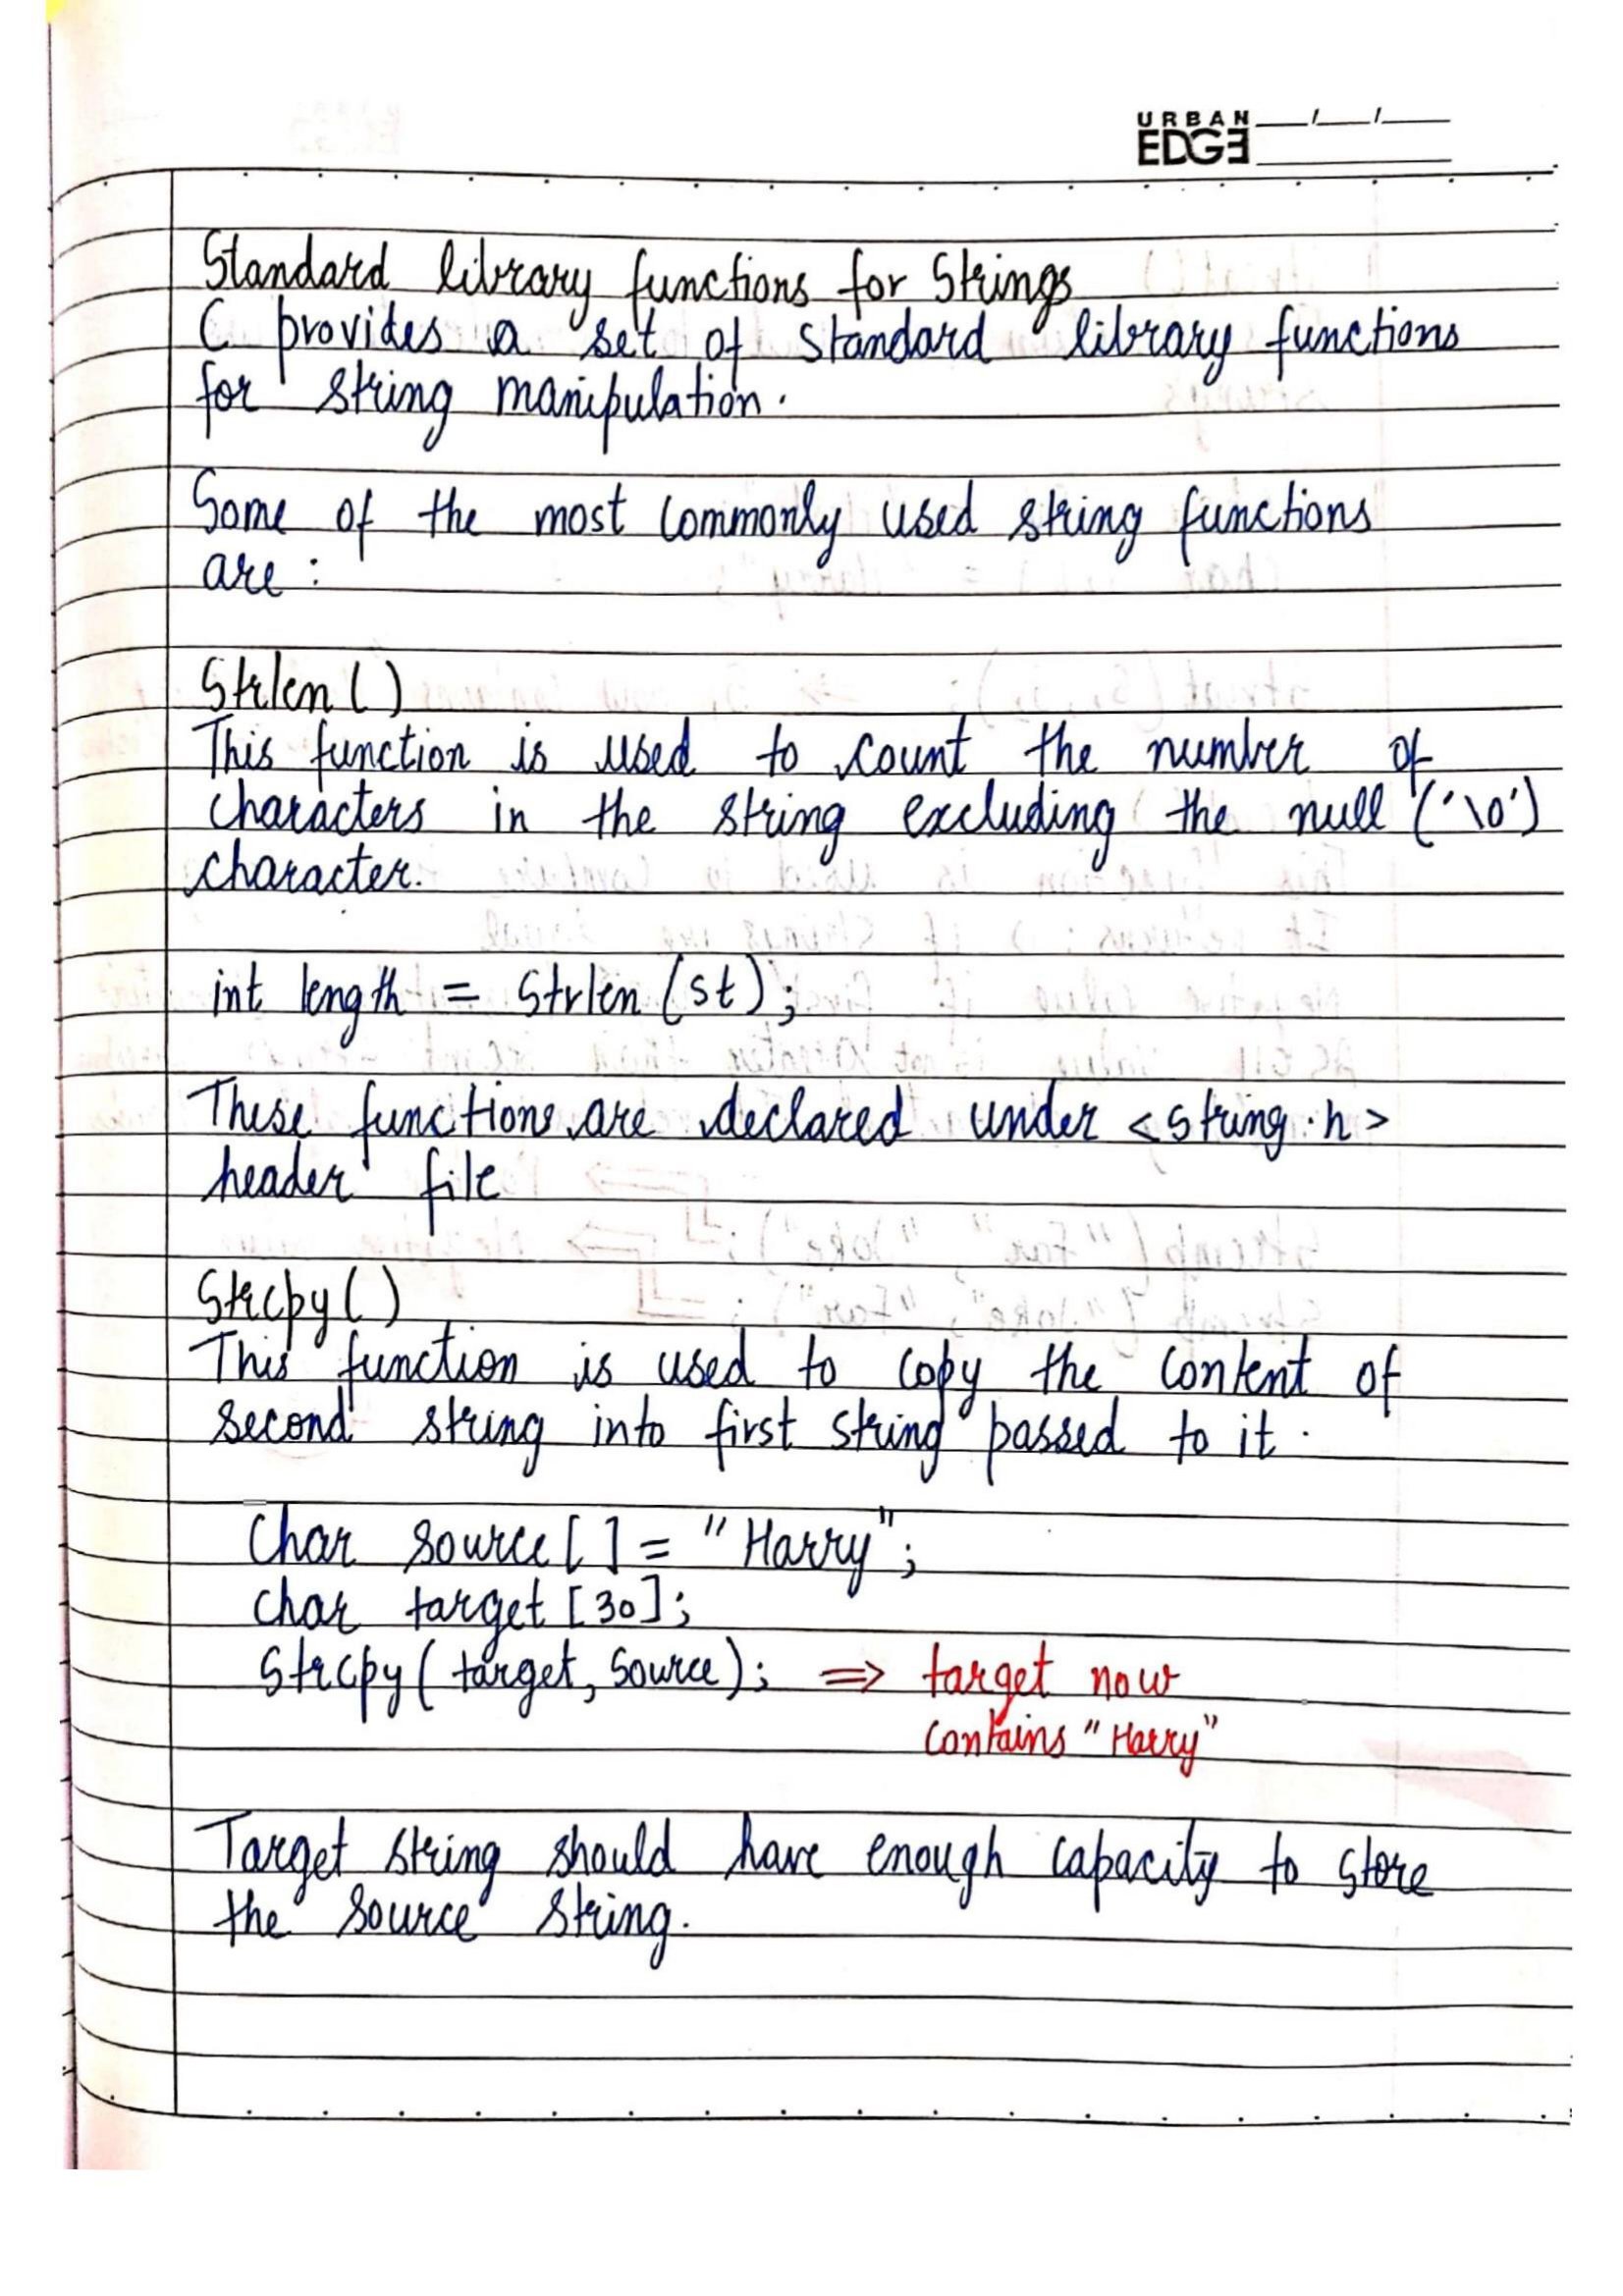 URBAN
EDGE
Standard library functions for Strings
C provides a set of standard library functions
for string manipulation.
Some of the most commonly used string functions
are :
Strlen ( )
This function is used to count the number of
characters in the string excluding the null ('\0')
character.
int length = Strlen (st) ;
These functions are declared under <string.h>
header file
Strcpy ( )
This function is used to copy the content of
second string into first string passed to it .
Char source [ ] = "Harry" ;
char target [30] ;
Strcpy ( target, Source) ; => target now
contains "Harry"
Target string should have enough capacity to store
the source string.